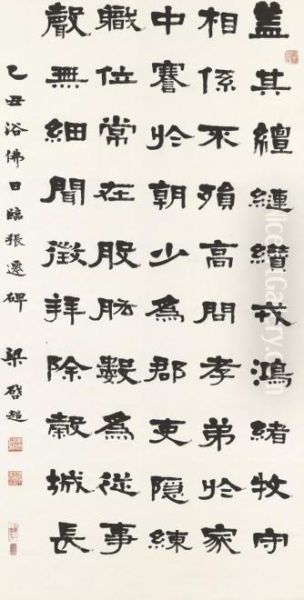 蓋其繵縺纘戎鴻緒牧守
相係不殞高問孝弟於家
中謇於朝少為郡吏隱練
職位常在股肱數為從事
聲無細聞徵拜除穀城長
乙丑浴佛日臨張遷碑 梁啓超